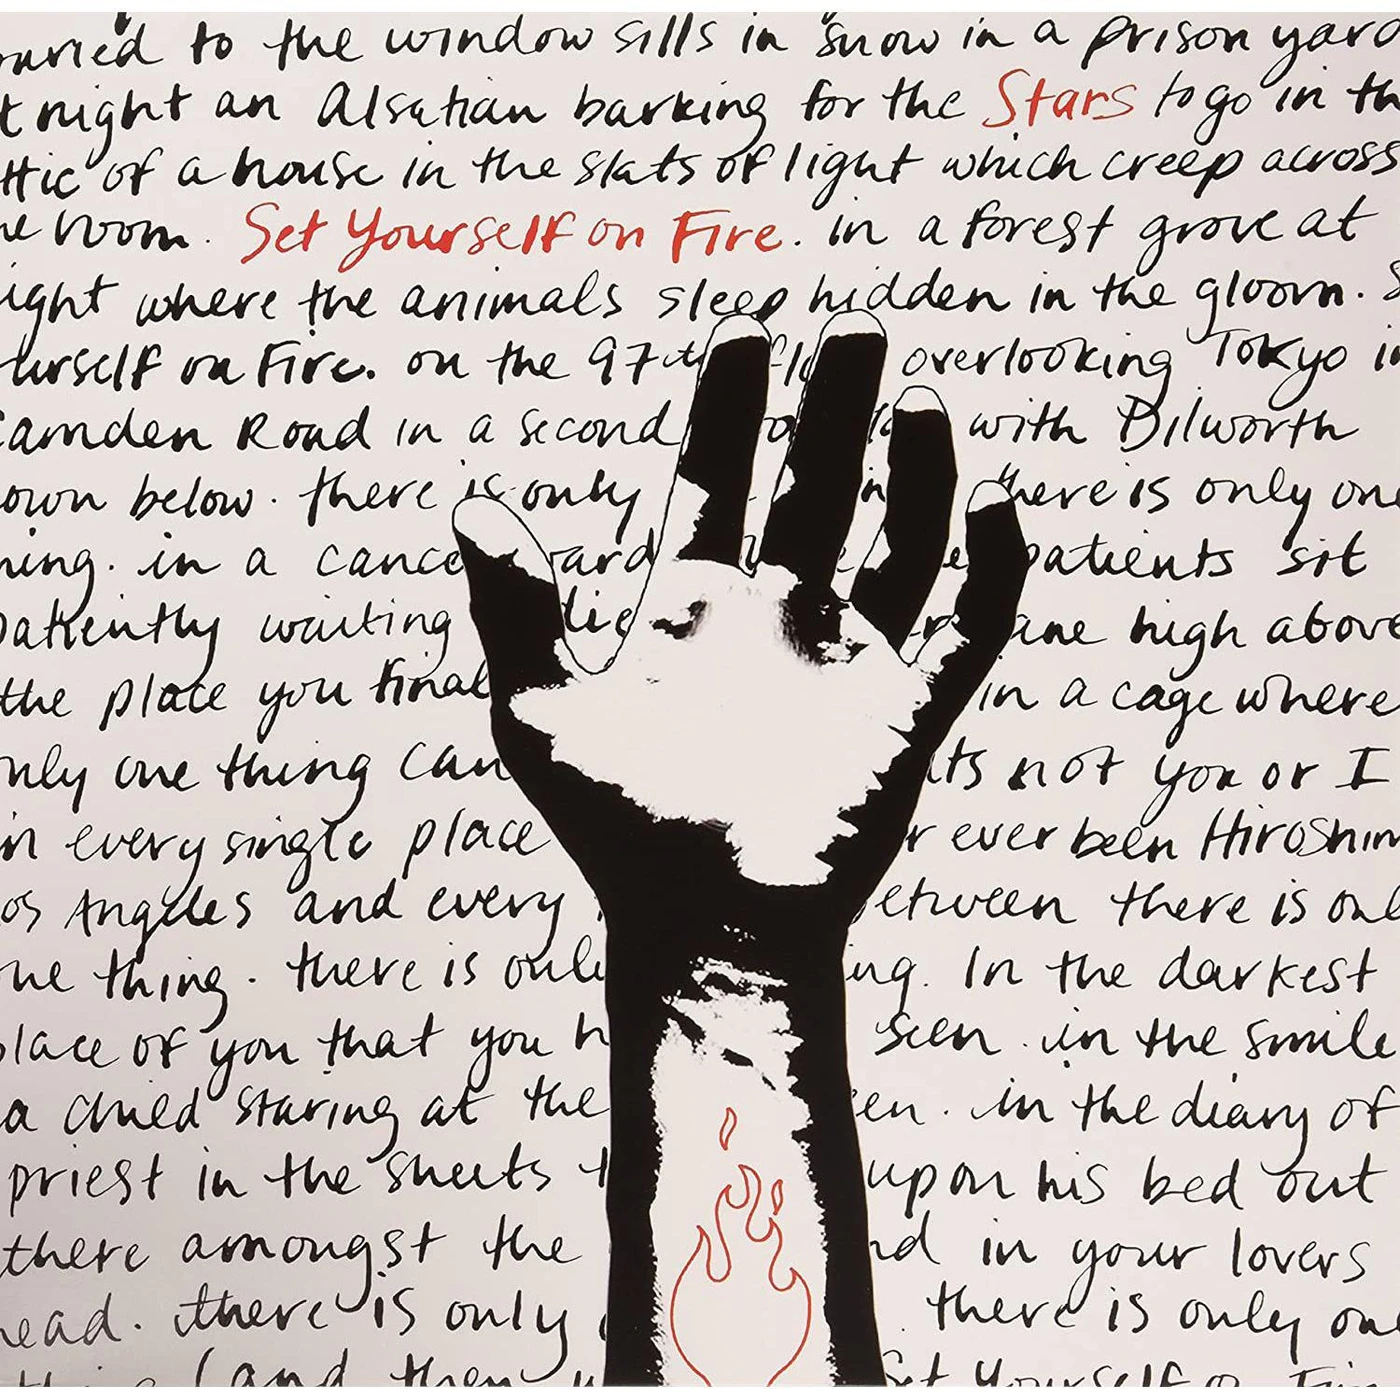 to the window sills in snow in a prison yard
t night an Alsatian barking for the Stars to go in th
ttic of a house in the slats of light which creep across
he room. Set Yourself on Fire. in a forest grove at
ight where the animals sleep hidden in the gloom. S
urself on Fire. on the 97th flo overlooking Tokyo in
Camden Road in a second with Dilworth
own below. there is only in there is only one
hing. in a cance ward patients sit
patiently waiting die ane high above
the place you final in a cage where
nly one thing can its not you or I
in every single place r ever been Hiroshim
os Angeles and every etween there is onl
ne thing. there is only ng. In the darkest
place of you that you h seen. in the smile
a child staring at the en. in the diary of
priest in the sheets t upon his bed out
there amongst the nd in your lovers
head. there is only there is only one
(and then Set Yourself o